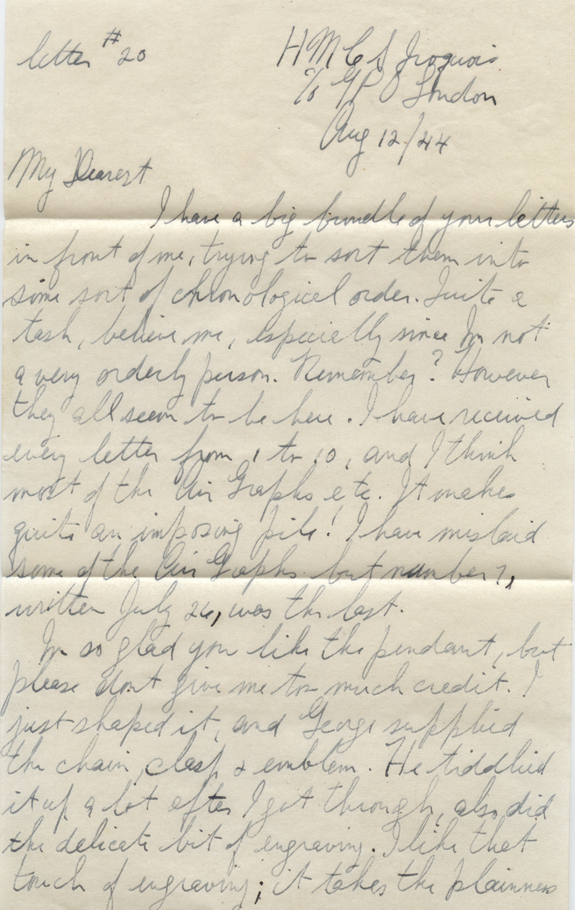 letter #20
HMCS Iroquois
c/o GPO London
Aug 12/44
My Dearest
I have a big bundle of your letters
in front of me, trying to sort them into
some sort of chronological order. Quite a
task, believe me, especially since Im not
a very orderly person. Remember? However
they all seem to be here. I have received
every letter from 1 to 10, and I think
most of the Air Graphs etc. It makes
quite an imposing pile! I have mislaid
some of the Air Graphs but number 7,
written July 26, was the last.
Im so glad you like the pendant, but
please dont give me too much credit. I
just shaped it, and George supplied
the chain, clasp & emblem. He tiddlied
it up a bit after I got through, also did
the delicate bit of engraving. I like that
touch of engraving; it takes the plainness